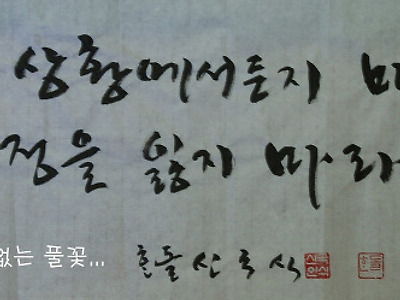 상황에서든지
정을 잃지 마라
없는 풀꽃...
흔들 신국식